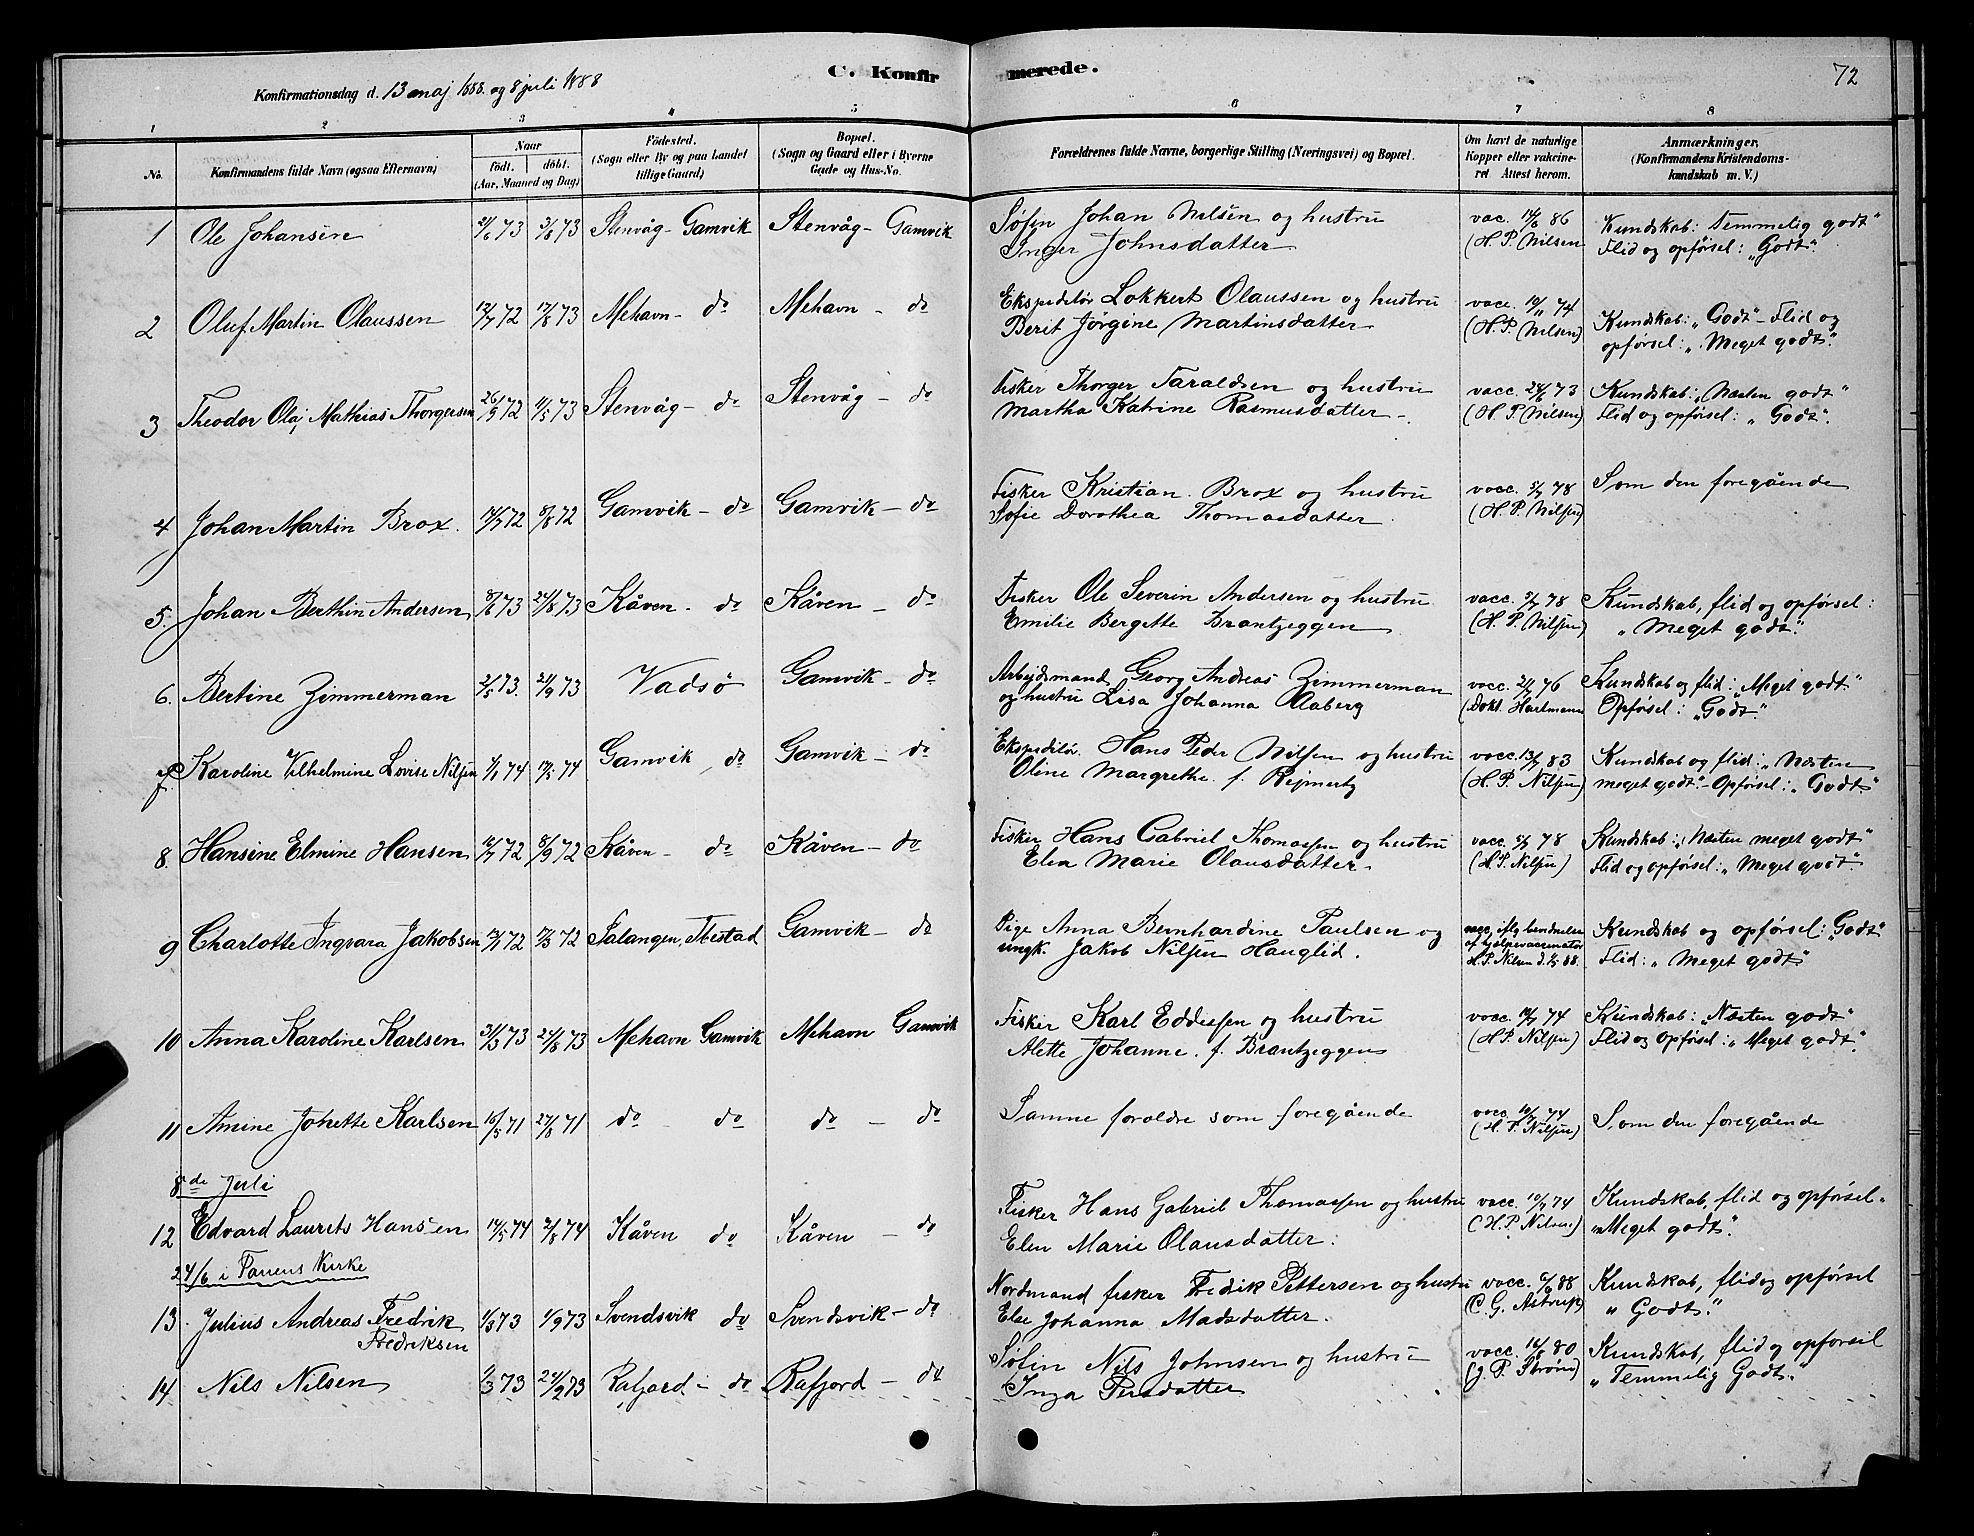 C. Konfirmerede.
72
Konfirmationsdag d. 13 maj 1888. og 8 juli 1888
1 2 3 4 5 6 7 8
No. Konfirmandens fulde Navn (ogsaa Efternavn) Naar født. døbt. (Aar, Maaned og Dag) Fødested. (Sogn eller By og paa Landet tillige Gaard) Bopæl. (Sogn og Gaard eller i Byerne Gade og Hus-No. Forældrenes fulde Navne, borgerlige Stilling (Næringsvei) og Bopæl. Om havt de naturlige Kopper eller vakcineret Attest herom. Anmærkninger, (Konfirmandens Kristendomskundskab m. V.)
1 Ole Johansen 73 73 Stenvåg - Gamvik Stenvåg - Gamvik Søfin Johan Nilsen og hustru vac. 86 Kundskab: Temmelig godt"
Inger Johnsdatter (H. P. Nilsen Flid og opførsel: "Godt".
2 Oluf Martin Olaussen 12/7 72 17/8 73 Mehavn - do Mehavn - do Ekspeditør Lokkert Olaussen og hustru vacc. 10/11 74 Kundskab: "Godt" - Flid og
Berit Jörgine Martinsdatter (H. P. Nilsen) opførsel: "Meget godt".
3 Theodor Olaj Mathias Thorgersen 26/5 72 11/5 73 Stenvåg - do Stenvåg - do Fisker Thorger Taraldsen og hustru vacc. 73 Kundskab: "Næsten godt"
Martha Katrine Rasmusdatter - (H. P. Nilsen) Flid og opførsel: "Godt".
4 Johan Martin Brox. 72 8/8 72 Gamvik - do Gamvik - do Fisker Kristian Brox og hustru vacc. 5/7 78 Som den foregående
Sofie Dorothea Thomasdatter. (H. P. Nilsen)
5. Johan Berthin Andersen 73 24/8 73 Kåven - do Kåven - do Fisker Ole Severin Andersen og hustru vacc. 5/7 78 Kundskab, flid og opførsel:
Emilie Bergitte Brantzeggen (H. P. Nilsen) "Meget godt".
6. Bertine Zimmerman 2/5 73. 21/9 73 Vadsø Gamvik - do Arbejdsmand Georg Andreas Zimmerman vacc. 76 Kundskab og flid: "Meget godt"
og hustru Lisa Johanna Aaberg (Dokt. Hartmann Opførsel: "Godt".
7 Karoline Vilhelmine Lovise Nilsen 74 74 Gamvik, do Gamvik - do Ekspeditör. Hans Peder Nilsen og hustru vacc. 13/7 83 Kundskab og flid: "Næsten
Oline Margrethe f. Rejmertz (H. P. Nilsen) meget godt". - Opførsel: "Godt".
8. Hansine Elmine Hansen 72 8/9 72 Kåven - do Kåven - do Fisker Hans Gabriel Thomassen og hustru vacc. 5/7 78 Kundskab: "Næsten meget godt"
Elen Marie Olausdatter. (H. P. Nilsen) Flid og opførsel: "Meget godt".
9 Charlotte Ingvara Jakobsen 72 72 Salangen, Ibestad Gamvik - do Pige Anna Bernhardine Paulsen og vacc. iflg. Kundskab og opførsel: "Godt"
ungk. Jakob Nilsen Hauglid. af hjelpevaccinatør H. P. Nilsen 88. Flid: "Meget godt"
10 Anna Karoline Karlsen 31/3 73 24/8 73 Mehavn Gamvik Mehavn Gamvik Fisker Karl Eddissen og hustru vacc. 10/7 74 Kundskab: "Næsten godt"
Alette Johanne. f. Brantzeggen (H. P. Nilsen) Flid og opførsel: "Meget godt".
11 Amine Johette Karlsen 16/5 71 27/8 71 do do do - do Samme forældre som foregående vacc. 10/7 74 Som den foregående
(H. P. Nilsen)
8de Juli
12 Edvard Laurits Hansen 17/5 74 2/8 74 Kåven do Kåven - do Fisker Hans Gabriel Thomassen og hustru vacc. 10/7 74 Kundskab, flid og opførsel
Elen Marie Olausdatter. (H. P. Nilsen.) "Meget godt".
24/6 i Tanens Kirke
13. Julius Andreas Fredrik Fredriksen 73 73 Svendsvik do Svendsvik - do Nordmand fisker Fredik Pettersen og hustru vacc. 88 Kundskab, flid og opførsel
Else Johanna Madsdatter. (C. G. Astrup) "Godt".
14 Nils Nilsen 73 24/9 73 Rafjord - do Rafjord - do Søfin Nils Johnsen og hustru vacc. 16/8 80 Kundskab, flid og opførsel
Inga Persdatter (J. P. Strøm) "Temmelig Godt".